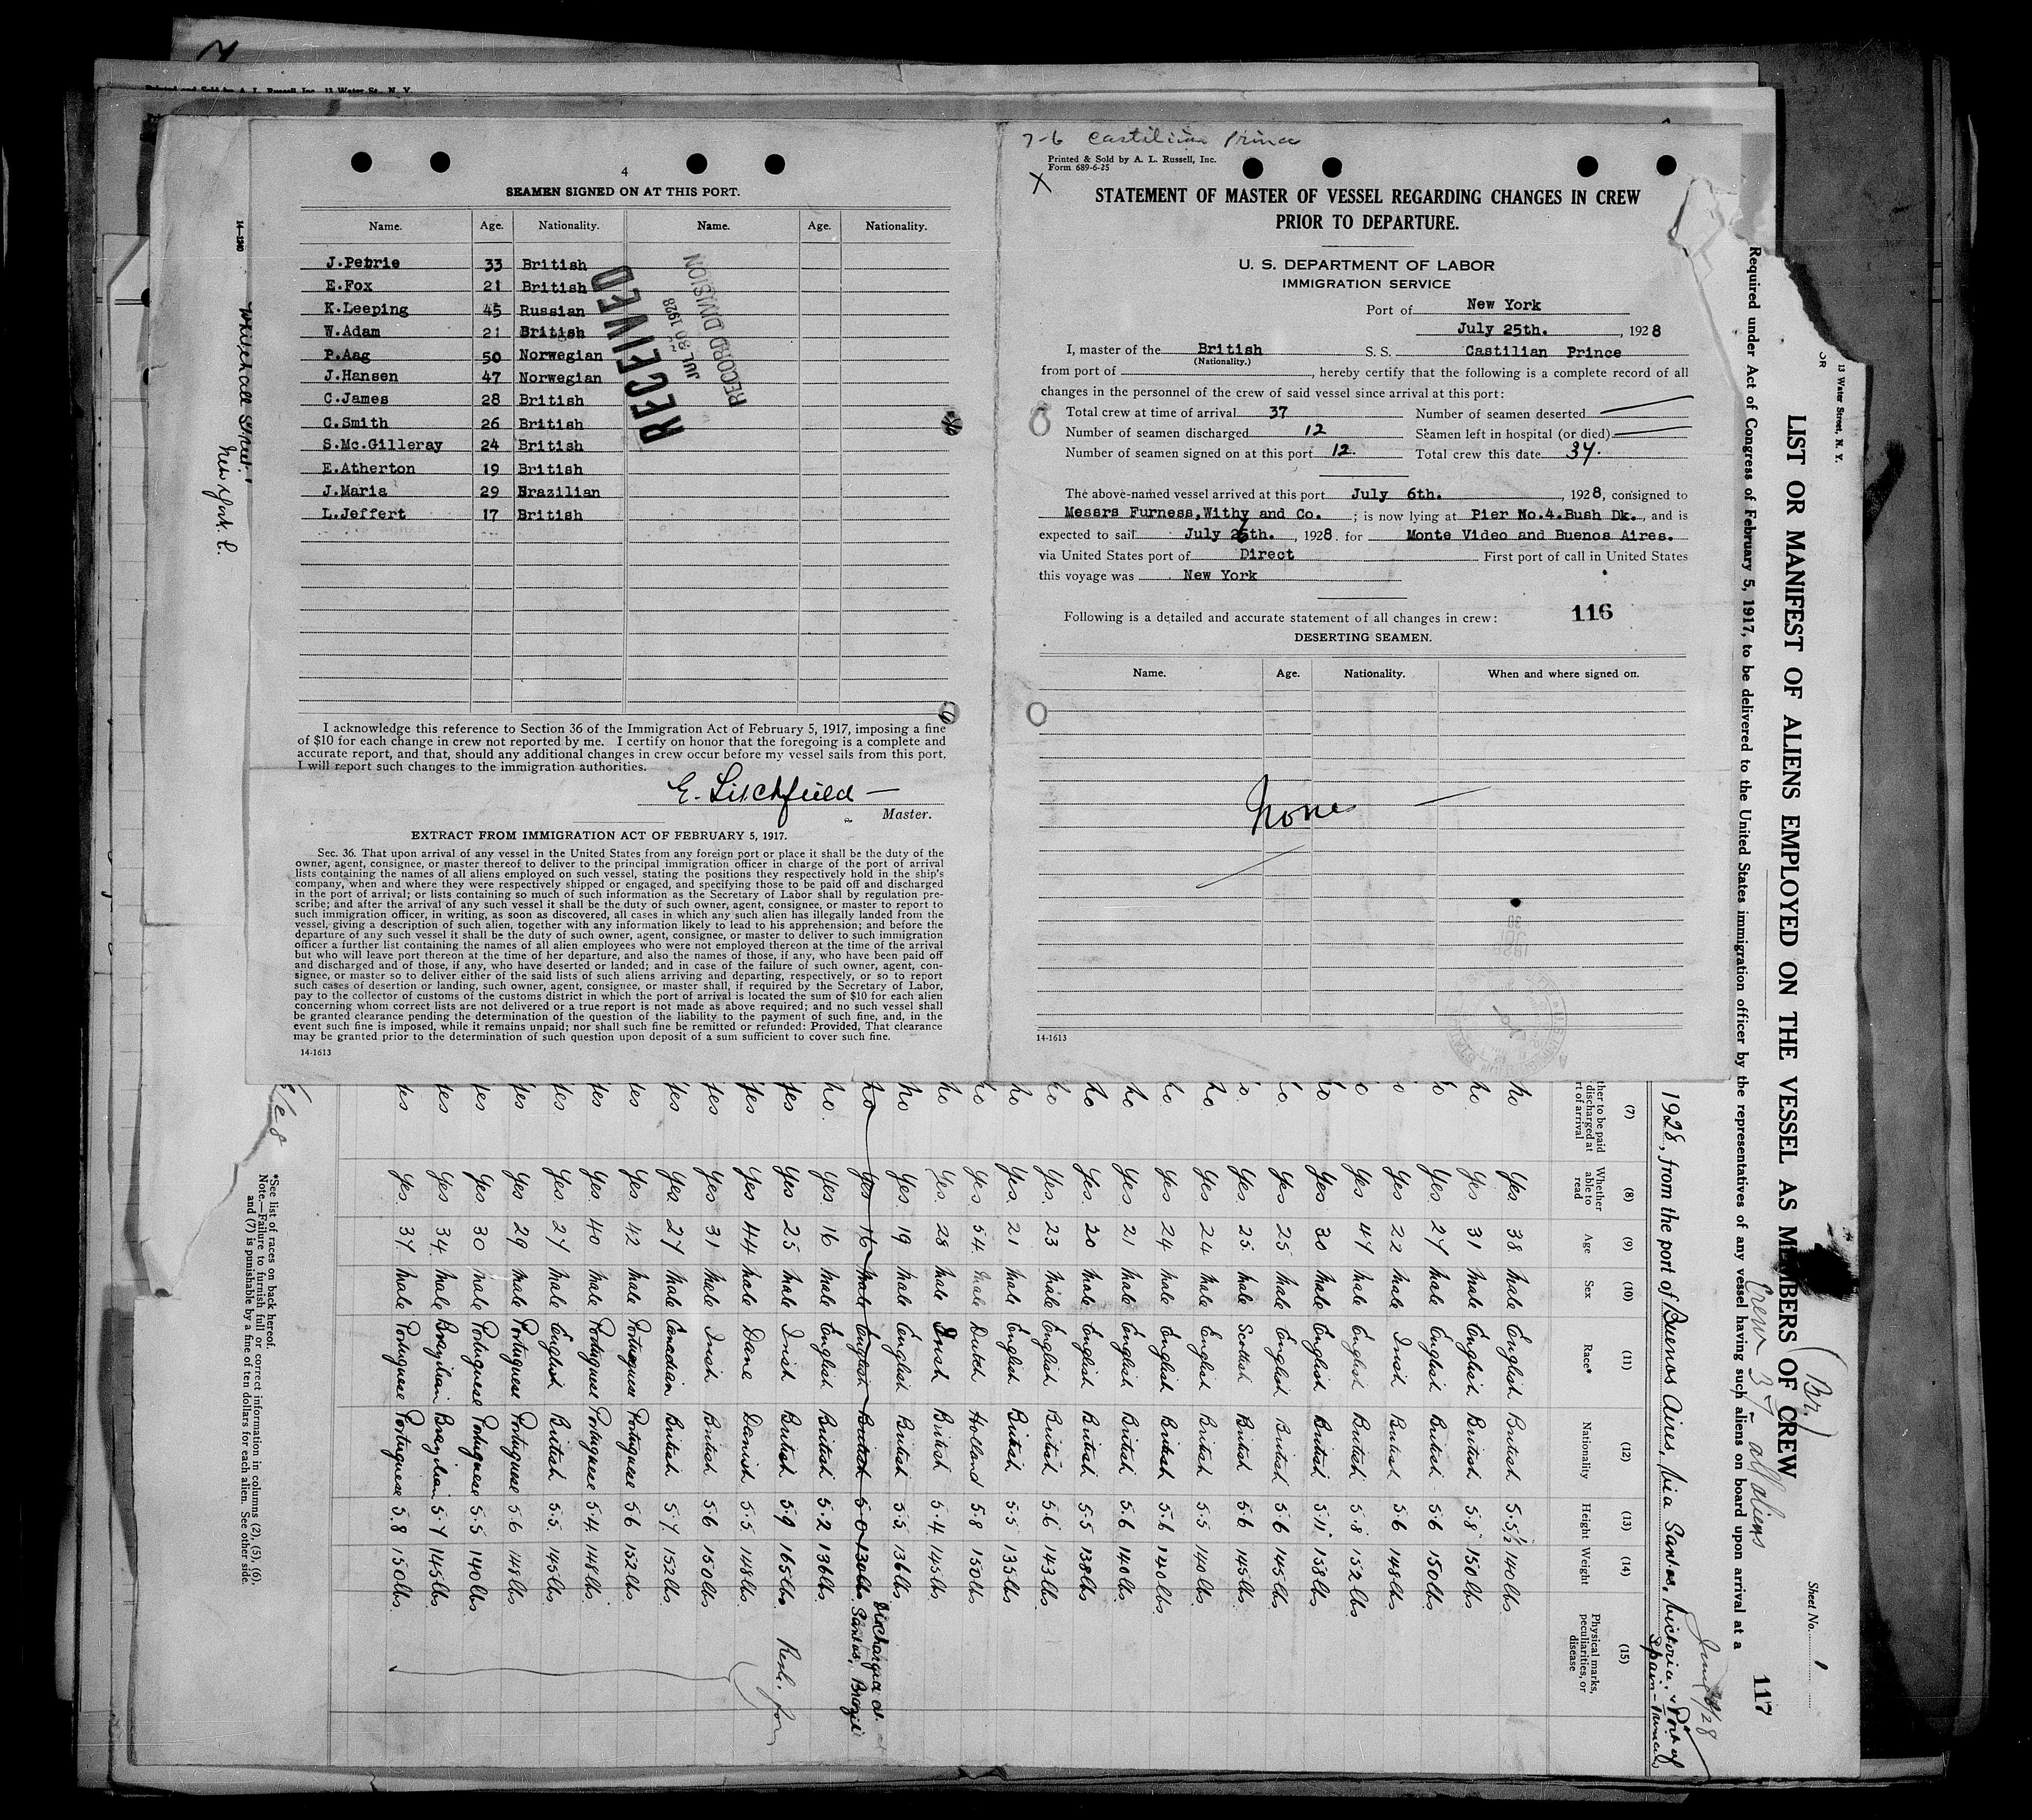 Printed and Sold by A. L. Russell, Inc. 13 Water St., N. Y.
4
SEAMEN SIGNED ON AT THIS PORT.
Name. Age. Nationality. Name. Age. Nationality.
J.Petrie 33 British
E.Fox 21 British
K.Leeping 45 Russian
W.Adam 21 British
P.Aag 50 Norwegian
J.Hansen 47 Norwegian
C.James 28 British
C.Smith 26 British
S.Mc.Gilleray 24 British
E.Atherton 19 British
J.Maria 29 Brazilian
L.Jeffert 17 British
RECEIVED
JUL 30 1928
RECORD DIVISION
I acknowledge this reference to Section 36 of the Immigration Act of February 5, 1917, imposing a fine
of $10 for each change in crew not reported by me. I certify on honor that the foregoing is a complete and
accurate report, and that, should any additional changes in crew occur before my vessel sails from this port,
I will report such changes to the immigration authorities.
E. Litchfield
Master.
EXTRACT FROM IMMIGRATION ACT OF FEBRUARY 5, 1917.
Sec. 36. That upon arrival of any vessel in the United States from any foreign port or place it shall be the duty of the
owner, agent, consignee, or master thereof to deliver to the principal immigration officer in charge of the port of arrival
lists containing the names of all aliens employed on such vessel, stating the positions they respectively hold in the ship's
company, when and where they were respectively shipped or engaged, and specifying those to be paid off and discharged
in the port of arrival; or lists containing so much of such information as the Secretary of Labor shall by regulation pre-
scribe; and after the arrival of any such vessel it shall be the duty of such owner, agent, consignee, or master to report to
such immigration officer, in writing, as soon as discovered, all cases in which any such alien has illegally landed from the
vessel, giving a description of such alien, together with any information likely to lead to his apprehension; and before the
departure of any such vessel it shall be the duty of such owner, agent, consignee, or master to deliver to such immigration
officer a further list containing the names of all alien employees who were not employed thereon at the time of the arrival
but who will leave port thereon at the time of her departure, and also the names of those, if any, who have been paid off
and discharged and of those, if any, who have deserted or landed; and in case of the failure of such owner, agent, con-
signee, or master so to deliver either of the said lists of such aliens arriving and departing, respectively, or so to report
such cases of desertion or landing, such owner, agent, consignee, or master shall, if required by the Secretary of Labor,
pay to the collector of customs of the customs district in which the port of arrival is located the sum of $10 for each alien
concerning whom correct lists are not delivered or a true report is not made as above required; and no such vessel shall
be granted clearance pending the determination of the question of the liability to the payment of such fine, and, in the
event such fine is imposed, while it remains unpaid; nor shall such fine be remitted or refunded: Provided, That clearance
may be granted prior to the determination of such question upon deposit of a sum sufficient to cover such fine.
14-1613
7-6 Castilian Prince
Printed & Sold by A. L. Russell, Inc.
Form 689-6-25
X
STATEMENT OF MASTER OF VESSEL REGARDING CHANGES IN CREW
PRIOR TO DEPARTURE.
U. S. DEPARTMENT OF LABOR
IMMIGRATION SERVICE
Port of New York
July 25th., 1928
I, master of the British S. S. Castilian Prince
(Nationality.)
from port of , hereby certify that the following is a complete record of all
changes in the personnel of the crew of said vessel since arrival at this port:
Total crew at time of arrival 37 Number of seamen deserted
Number of seamen discharged 12 Seamen left in hospital (or died)
Number of seamen signed on at this port 12. Total crew this date 37.
The above-named vessel arrived at this port July 6th. , 1928, consigned to
Messrs Furness,Withy and Co. ; is now lying at Pier No.4.Bush Dk., and is
expected to sail July 26th. , 1928. for Monte Video and Buenos Aires.
via United States port of Direct First port of call in United States
this voyage was New York
116
Following is a detailed and accurate statement of all changes in crew:
DESERTING SEAMEN.
Name. Age. Nationality. When and where signed on.
None
14-1613
14-1240
Whitehall Street
New York C.
13 Water Street, N. Y.
LIST OR MANIFEST OF ALIENS EMPLOYED ON THE VESSEL AS MEMBERS OF CREW
(Br.)
Sheet No. 1
Crew 37 - all aliens
Required under Act of Congress of February 5, 1917, to be delivered to the United States immigration officer by the representatives of any vessel having such aliens on board upon arrival at a
117
1928, from the port of Buenos Aires, via Santos, Victoria, & Port of Spain - Trinidad
(7) (8) (9) (10) (11) (12) (13) (14) (15)
ther to be paid discharged at rt of arrival Whether able to read Age Sex Race* Nationality Height Weight Physical marks, peculiarities, or disease
no Yes 38 Male English British 5.5½ 140 lbs
no Yes 31 Male English British 5.8 150 lbs
Yes 27 Male English British 5.6 150 lbs
Yes 22 Male Irish British 5.6 148 lbs
Yes 47 Male English British 5.8 152 lbs
Yes 30 Male English British 5.11 158 lbs
Yes 25 Male English British 5.6 145 lbs
Yes 25 Male Scottish British 5.6 145 lbs
no Yes 24 Male English British 5.5 140 lbs
no Yes 24 Male English British 5.6 140 lbs
no Yes 21 Male English British 5.6 140 lbs
no Yes 20 Male English British 5.5 138 lbs
no Yes 23 Male English British 5.6 143 lbs
no Yes 21 Male English British 5.5 135 lbs
no Yes 54 Male Dutch Holland 5.8 150 lbs
no Yes 28 Male Irish British 5.4 145 lbs
no Yes 19 Male English British 5.5 136 lbs
no Yes 16 Male English British 5.0 130 lbs Discharged at Santos, Brazil
no Yes 16 Male English British 5.2 136 lbs
Yes Yes 25 Male Irish British 5.9 165 lbs
Yes Yes 44 Male Dane Danish 5.5 148 lbs
Yes Yes 31 Male Irish British 5.6 150 lbs
Yes Yes 27 Male Canadian British 5.7 152 lbs
Yes Yes 42 Male Portuguese Portuguese 5.6 152 lbs
Yes Yes 40 Male Portuguese Portuguese 5.4 148 lbs
Yes Yes 27 Male English British 5.5 145 lbs
Yes Yes 29 Male Portuguese Portuguese 5.6 148 lbs
Yes Yes 30 Male Portuguese Portuguese 5.5 140 lbs
Yes Yes 34 Male Brazilian Brazilian 5.7 145 lbs
Yes Yes 37 Male Portuguese Portuguese 5.8 150 lbs
*See list of races on back hereof.
Note.—Failure to furnish full or correct information in columns (2), (5), (6),
and (7) is punishable by a fine of ten dollars for each alien. See other side.